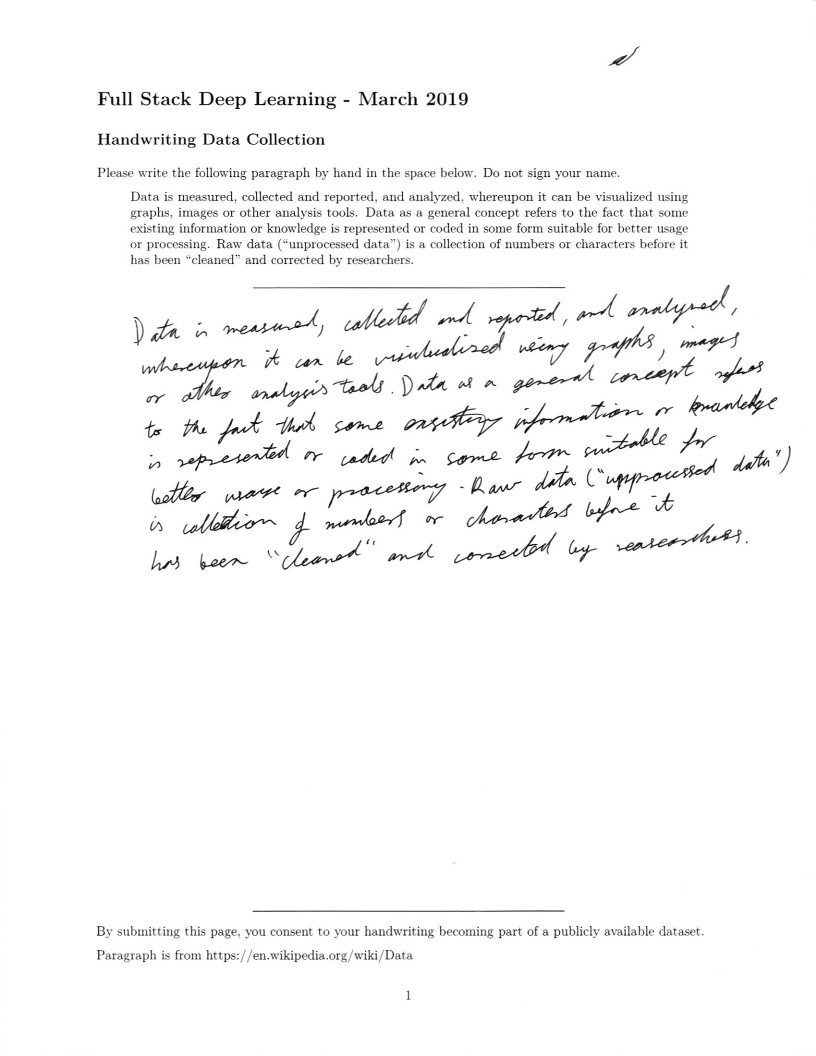 Full Stack Deep Learning - March 2019
Handwriting Data Collection
Please write the following paragraph by hand in the space below. Do not sign your name.
Data is measured, collected and reported, and analyzed, whereupon it can be visualized using
graphs, images or other analysis tools. Data as a general concept refers to the fact that some
existing information or knowledge is represented or coded in some form suitable for better usage
or processing. Raw data (“unprocessed data”) is a collection of numbers or characters before it
has been “cleaned” and corrected by researchers.
Data is measured, collected and reported, and analysed,
whereupon it can be using graphs, images
or other analysis tools. Data as a general concept refers
to the fact that some information or knowledge
is represented or coded in some form suitable for
better usage or processing. Raw data ("upprocessed data")
is collection of numbers or characters before it
has been "cleaned" and corrected by researchers.
By submitting this page, you consent to your handwriting becoming part of a publicly available dataset.
Paragraph is from https://en.wikipedia.org/wiki/Data
1